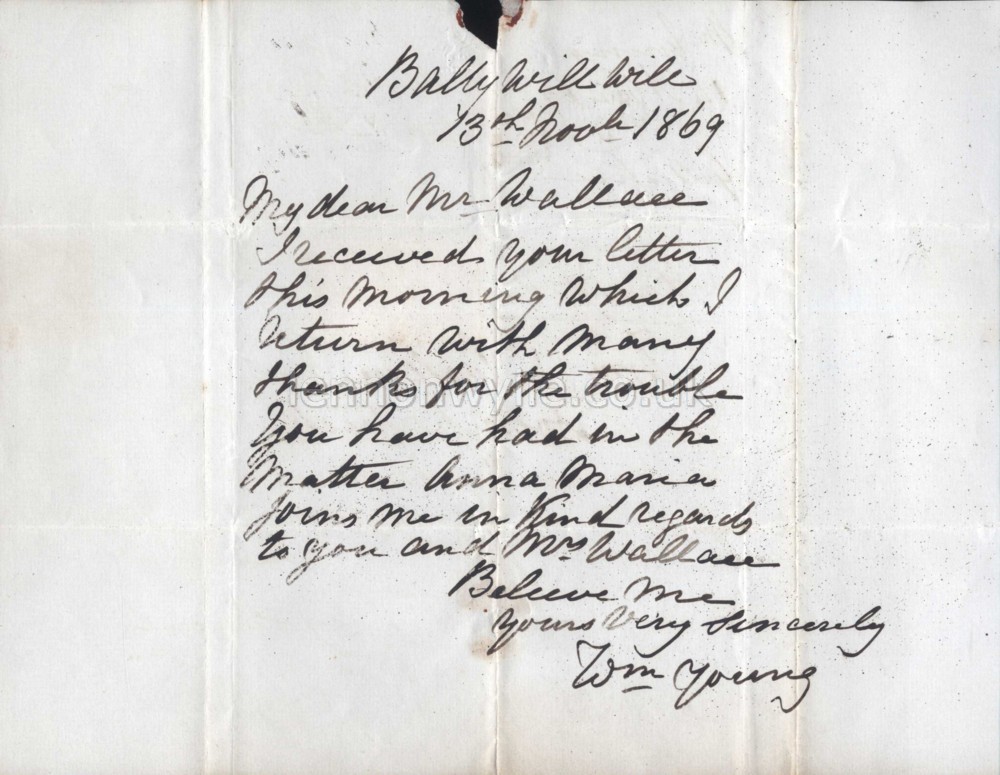 BallyWillWill
13th Novb 1869
My dear Mr Wallace
I received your letter
this morning which I
return with many
thanks for the trouble
You have had in the
Matter Anna Maria
joins me in Kind regards
to you and Mrs Wallace
Believe Me
yours Very sincerely
Wm Young
lennonwylie.co.uk